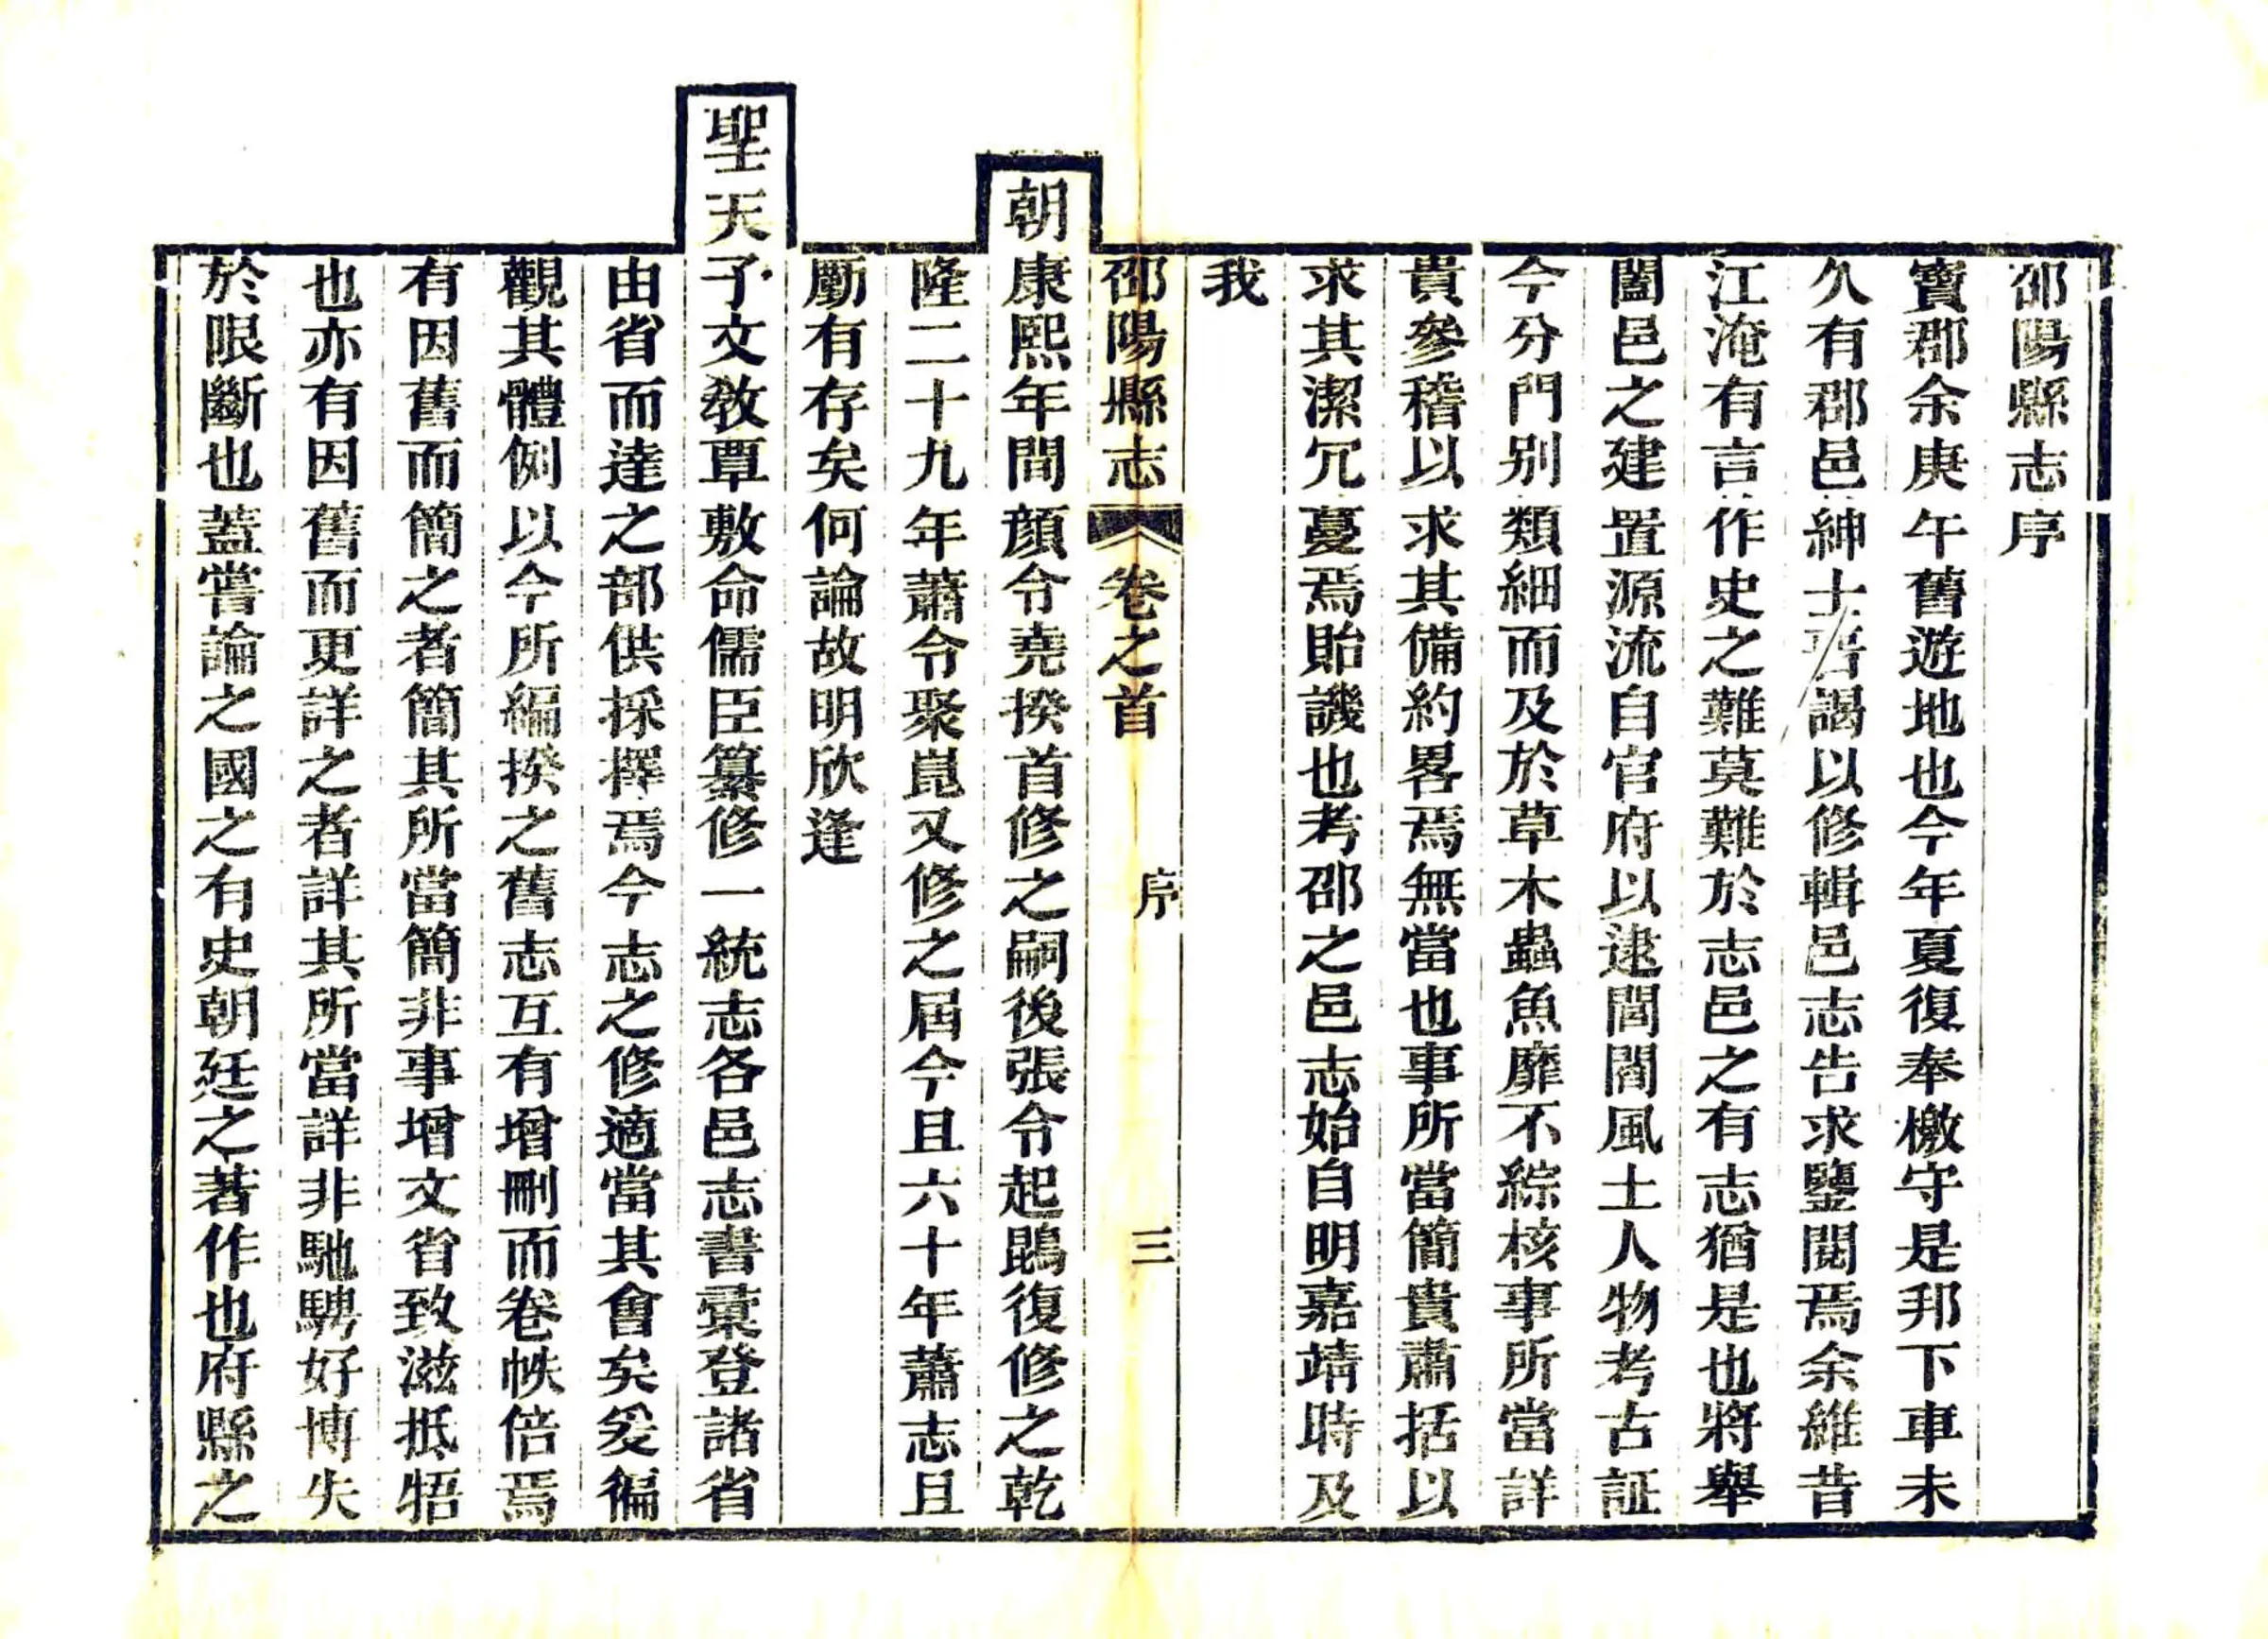 邵陽縣志序
寶郡余庚午舊遊地也今年夏復奉檄守是邦下車未
久有郡邑紳士晉謁以修輯邑志告求鑒閱焉余維昔
江淹有言作史之難莫難於志邑之有志猶是也將舉
闔邑之建置源流自官府以逮閭閻風土人物考古証
今分門别類細而及於草木蟲魚靡不綜核事所當詳
貴參稽以求其備約畧焉無當也事所當簡貴肅括以
求其潔冗蔓焉貽譏也考邵之邑志始自明嘉靖時及
我
邵陽縣志 卷之首 序 三
朝康熙年間顔令堯揆首修之嗣後張令起鵾復修之乾
隆二十九年蕭令聚崑又修之屆今且六十年蕭志且
勵有存矣何論故明欣逢
聖天子文敎覃敷命儒臣纂修一統志各邑志書彙登諸省
由省而達之部供採擇焉今志之修適當其會矣爰徧
觀其體例以今所編揆之舊志互有增刪而卷帙倍焉
有因舊而簡之者簡其所當簡非事增文省致滋抵牾
也亦有因舊而更詳之者詳其所當詳非馳騁好博失
於限斷也蓋嘗論之國之有史朝廷之著作也府縣之